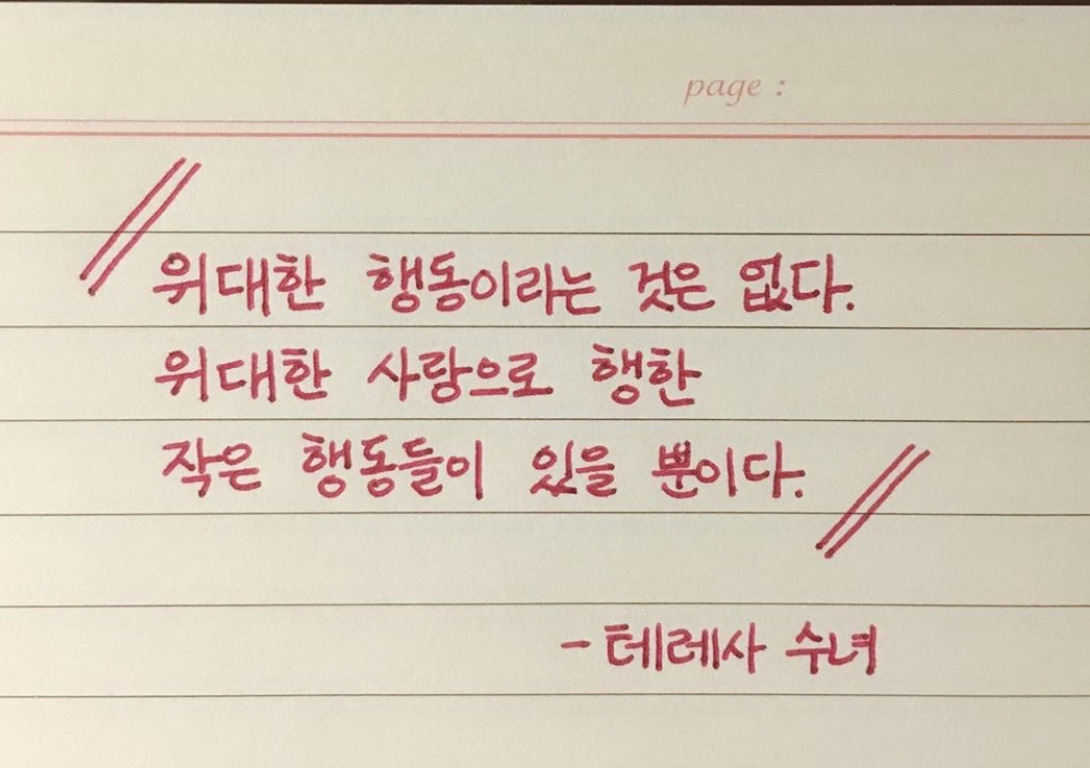 page :
위대한 행동이라는 것은 없다.
위대한 사랑으로 행한
작은 행동들이 있을 뿐이다.
- 테레사 수녀